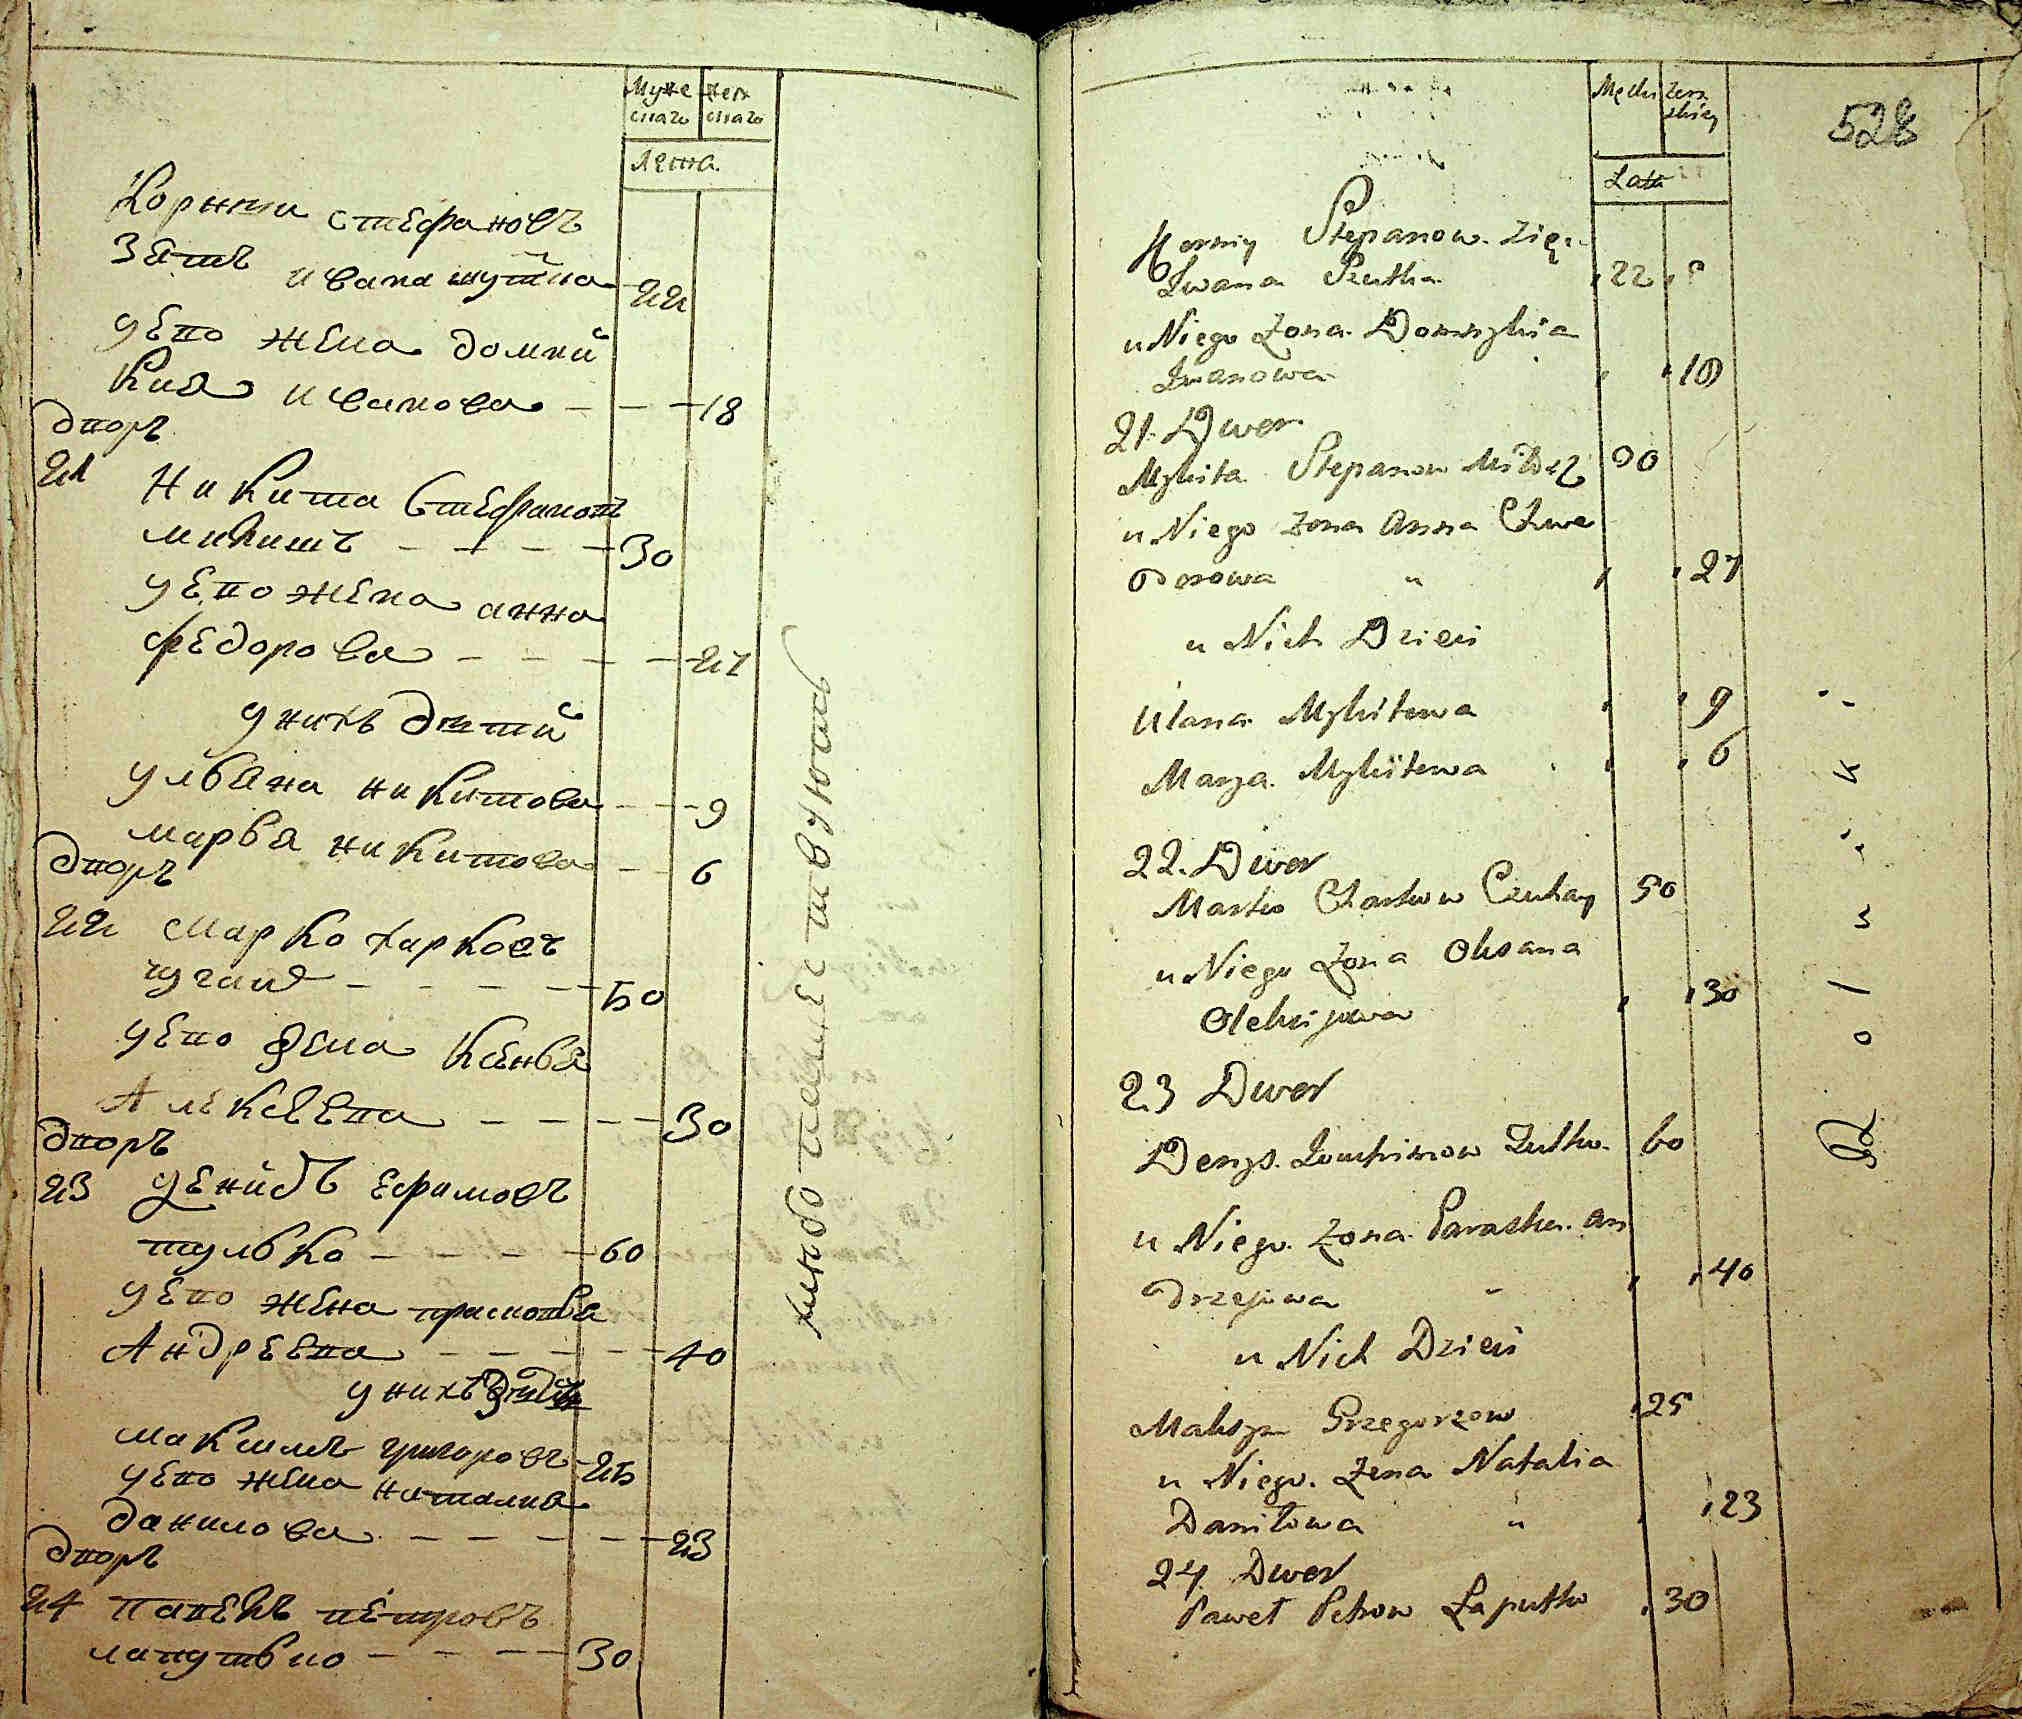 Муже жен
скаго скаго
Лета
Корнии стефановъ
зеть ивана шутка 22
у ево жена домни
кия иванова 18
дворъ
21 Никита Стефановъ
микитъ 30
у ево жена анна
федорова 27
у нихъ дети
ульяна никитова 9
марья никитова 6
дворъ
22 Марко харковъ
чугаи 50
у ево жена Ксенья
Алексеева 30
дворъ
23 денисъ ефимовъ
тулько 60
у ево жена прасковья
Андреева 40
у нихъ дети
максимъ григоровъ 25
у ево жена наталия
данилова 23
дворъ
24 павелъ петровъ
лапутько 30
528
Męzki Zen
skiey
Lata
Korniy Stepanow Zięc
Iwana Szutka 22
u Niego Zona Domnykia
Iwanowa 18
21. Dwor
Mykita Stepanow 30
u Niego Zona Anna Chwe
dorowa " 27
u Nich Dzieci
Ulana Mykitowa 9
Marya Mykitowa 6
22. Dwor
Marko Charkow Czuhay 50
u Niego Zona Oksana
Oleksijowa 30
23 Dwor
Denys Jouchimow Tulko 60
u Niego Zona Paraska An
drzejowa 40
u Nich Dzieci
Maksym Grzegorzow 25
u Niego Zona Natalia
Daniłowa " 23
24 Dwor
Paweł Petrow Łaputko 30